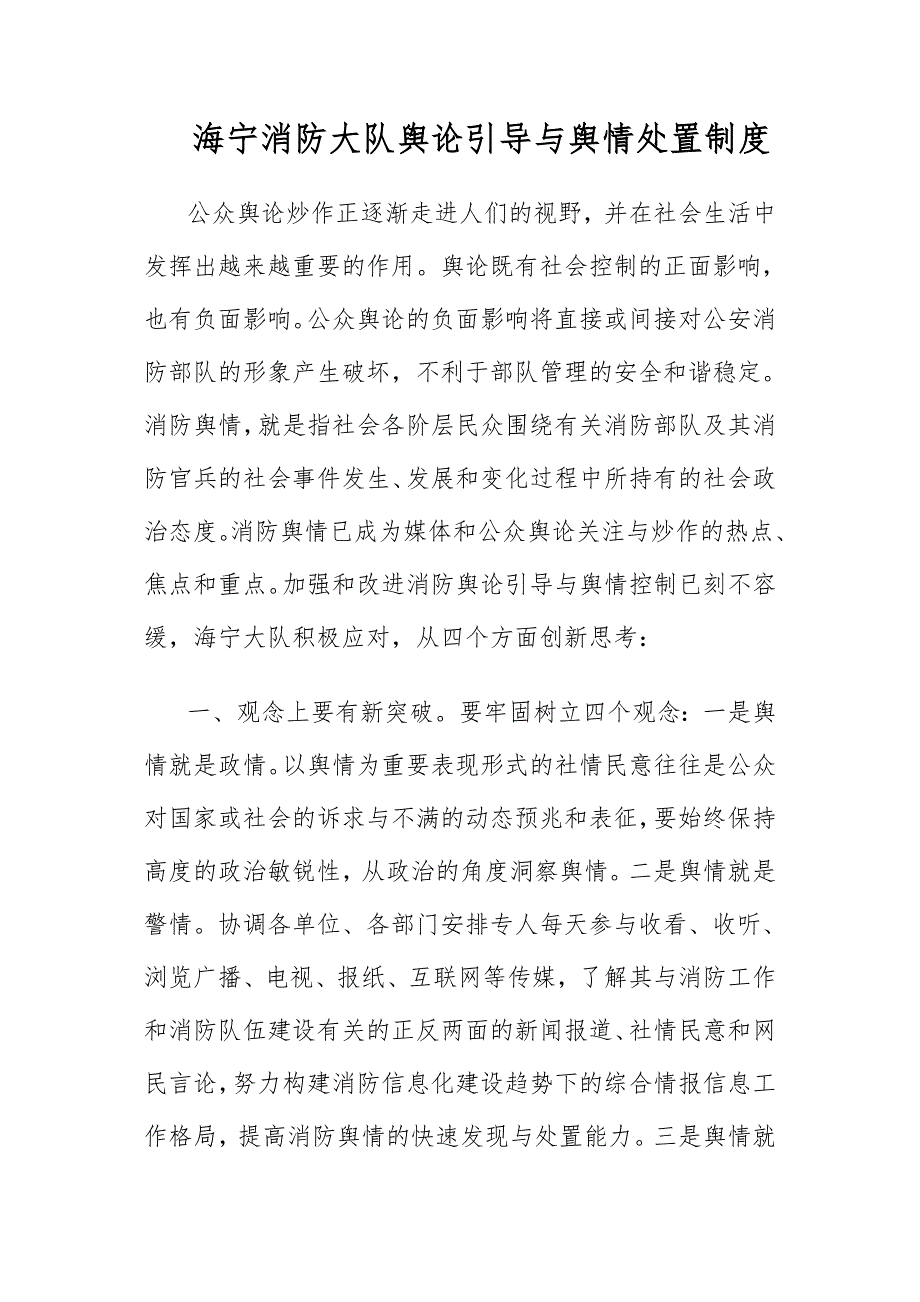 海宁消防大队舆论引导与舆情处置制度
公众舆论炒作正逐渐走进人们的视野，并在社会生活中
发挥出越来越重要的作用。舆论既有社会控制的正面影响，
也有负面影响。公众舆论的负面影响将直接或间接对公安消
防部队的形象产生破坏，不利于部队管理的安全和谐稳定。
消防舆情，就是指社会各阶层民众围绕有关消防部队及其消
防官兵的社会事件发生、发展和变化过程中所持有的社会政
治态度。消防舆情已成为媒体和公众舆论关注与炒作的热点、
焦点和重点。加强和改进消防舆论引导与舆情控制已刻不容
缓，海宁大队积极应对，从四个方面创新思考：
一、观念上要有新突破。要牢固树立四个观念：一是舆
情就是政情。以舆情为重要表现形式的社情民意往往是公众
对国家或社会的诉求与不满的动态预兆和表征，要始终保持
高度的政治敏锐性，从政治的角度洞察舆情。二是舆情就是
警情。协调各单位、各部门安排专人每天参与收看、收听、
浏览广播、电视、报纸、互联网等传媒，了解其与消防工作
和消防队伍建设有关的正反两面的新闻报道、社情民意和网
民言论，努力构建消防信息化建设趋势下的综合情报信息工
作格局，提高消防舆情的快速发现与处置能力。三是舆情就